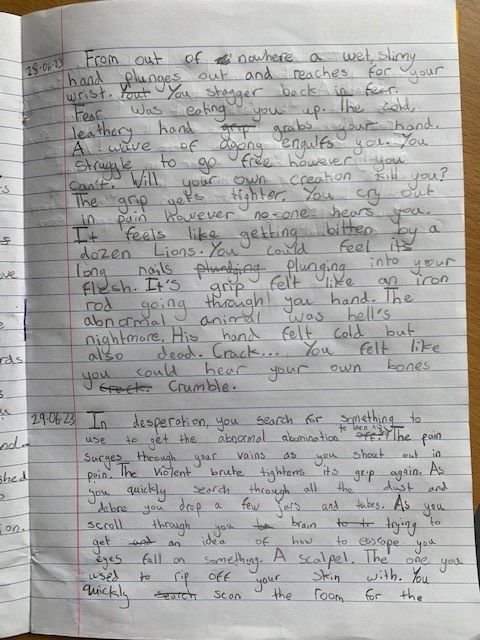 28-06-23 From out of nowhere a wet, slimy
hand plunges out and reaches for your
wrist. Yout You stagger back in fear.
Fear was eating you up. The cold,
leathery hand grip grabs your hand.
A wave of agony engulfs you. You
struggle to go free however you
can't. Will your own creation kill you?
The grip gets tighter. You cry out
in pain however no-one hears you.
It feels like getting bitten by a
dozen Lions. You could feel its
long nails plundging plunging into your
flesh. It's grip felt like an iron
rod going through you hand. The
abnormal animal was hell's
nightmare. His hand felt cold but
also dead. Crack... You felt like
you could hear your own bones
Crack. Crumble.
29-06-23 In desperation, you search for something to
use to get the abnormal abomination The pain
surges through your vains as you shout out in
pain. The violent brute tightens its grip again. As
you quickly search through all the dust and
debre you drop a few jars and tubes. As you
scroll through you brain trying to
get an idea of how to escape you
eyes fall on something. A scalpel. The one you
used to rip off your skin with. You
quickly search scan the room for the